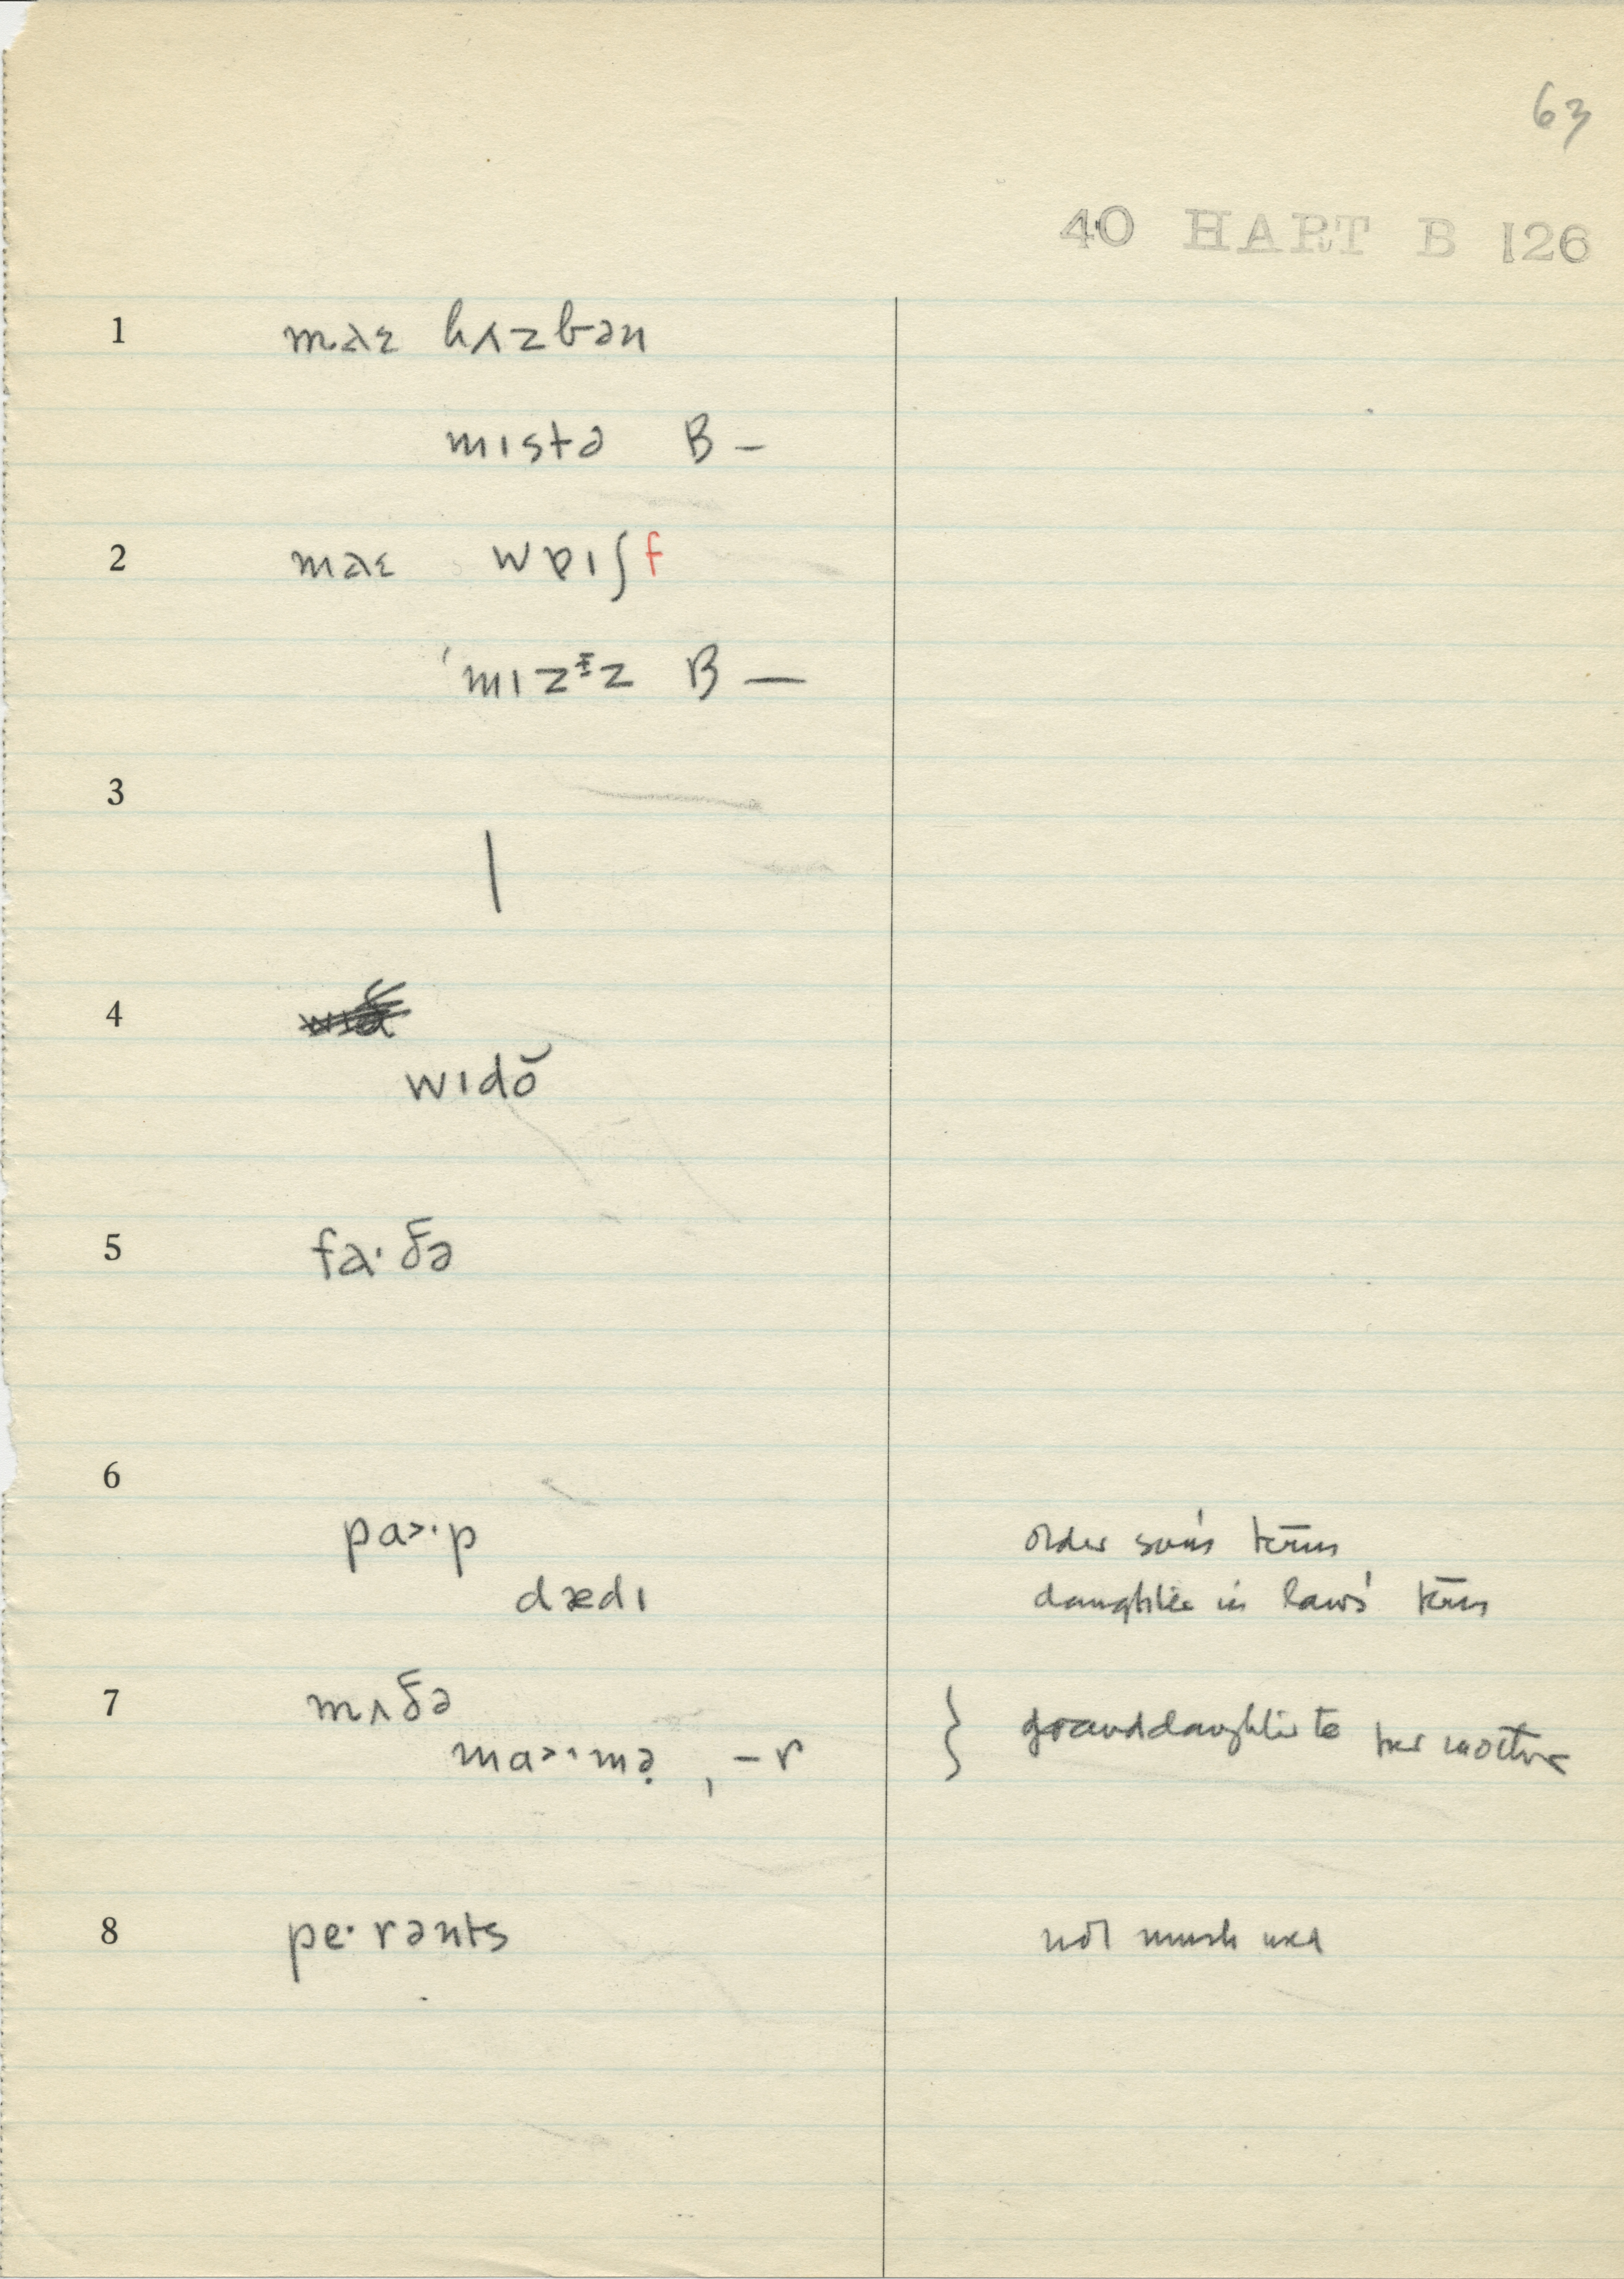 63
40 HART B 126
1 maɛ hʌzbən
mɪstə B –
2 maɛ wɐɪf
ˈmɪzᵻz B —
3
4
wɪdŏ
5 fa·ðə
6
pa˃·p older son's term
dædɪ daughter in law's term
7 mʌðə
ma˃·mə̣ , –r } granddaughter to her mother
8 pe·rənts not much used